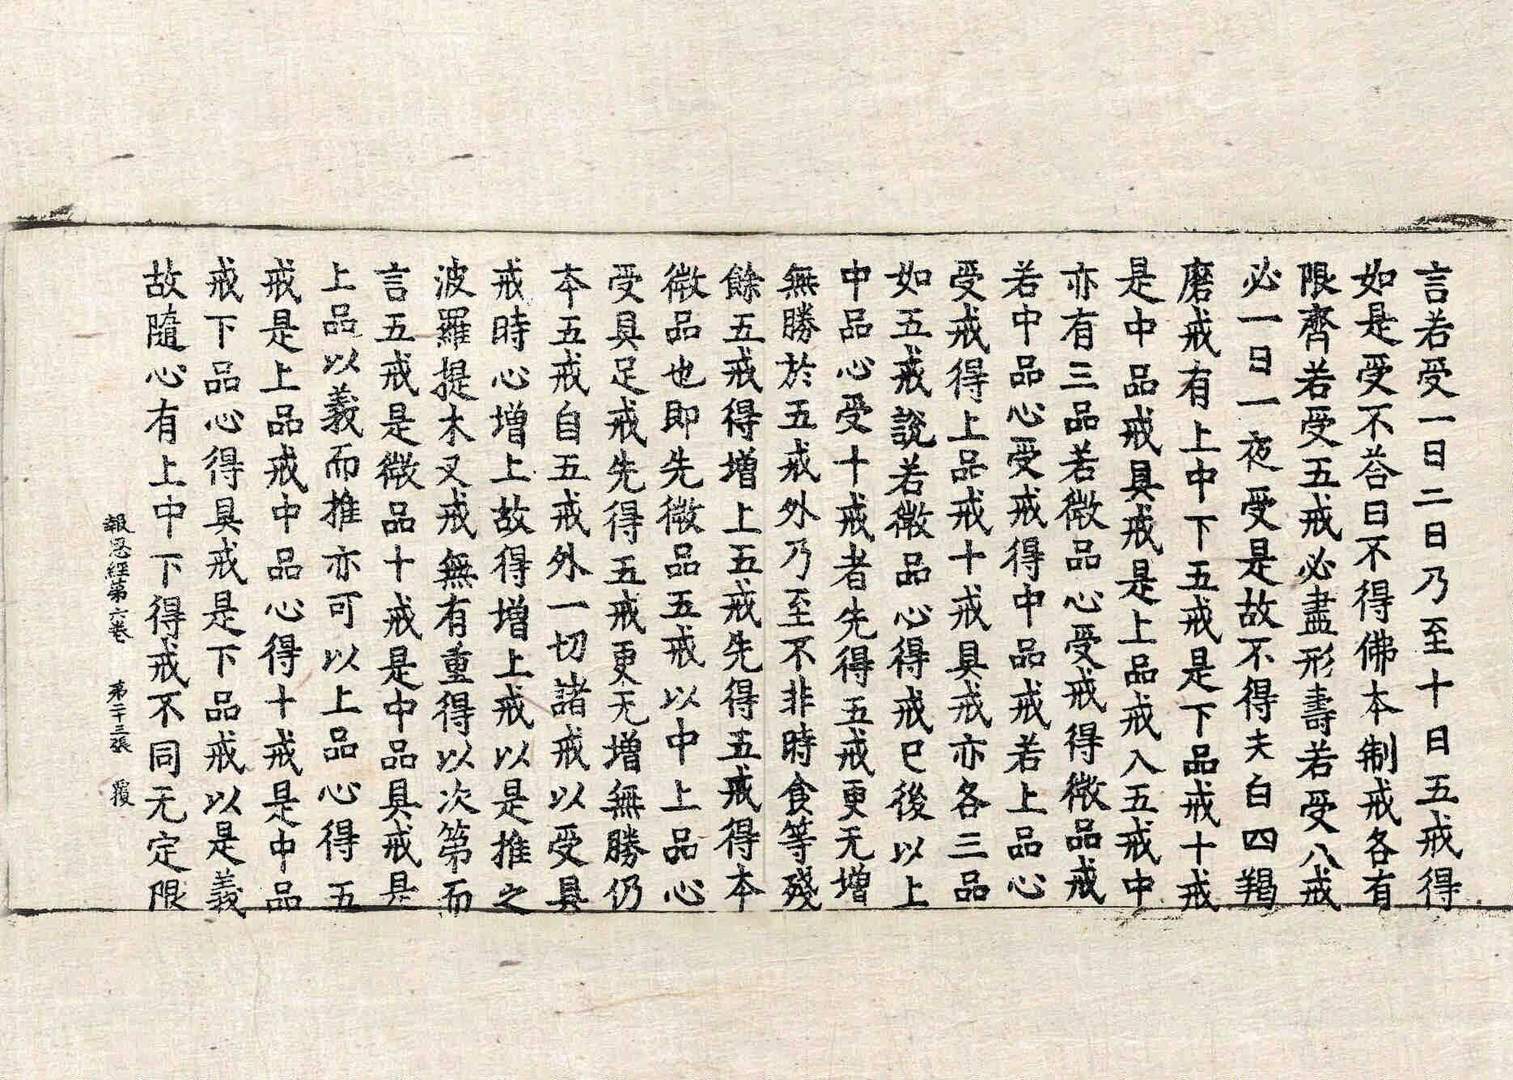 言若受一日二日乃至十日五戒得
如是受不荅曰不得佛本制戒各有
限齊若受五戒必盡形壽若受八戒
必一日一夜受是故不得夫白四羯
磨戒有上中下五戒是下品戒十戒
是中品戒具戒是上品戒入五戒中
亦有三品若微品心受戒得微品戒
若中品心受戒得中品戒若上品心
受戒得上品戒十戒具戒亦各三品
如五戒說若微品心得戒已後以上
中品心受十戒者先得五戒更无增
無勝於五戒外乃至不非時食等殘
餘五戒得增上五戒先得五戒得本
微品也即先微品五戒以中上品心
受具足戒先得五戒更无增無勝仍
本五戒自五戒外一切諸戒以受具
戒時心增上故得增上戒以是推之
波羅提木叉戒無有重得以次第而
言五戒是微品十戒是中品具戒是
上品以義而推亦可以上品心得五
戒是上品戒中品心得十戒是中品
戒下品心得具戒是下品戒以是義
故隨心有上中下得戒不同无定限
報恩經第六卷 第二十三張 覆